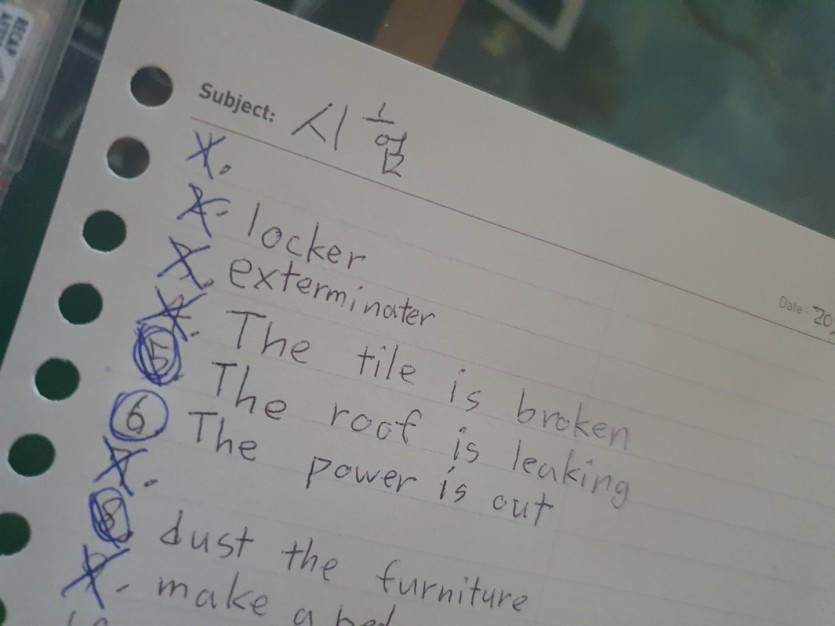 RECAP
Subject: 시험
Date: 20
1.
2. locker
3. exterminater
4. The tile is broken
5. The roof is leaking
6 The power is out
7.
8. dust the furniture
9. make a bed
10